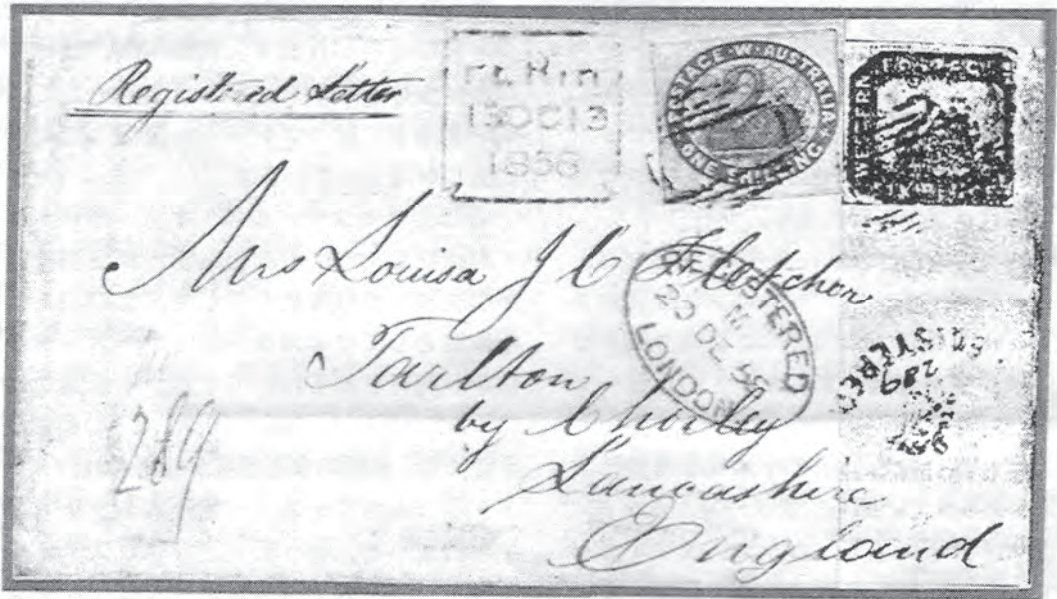 Registered Letter
PERTH
13 OC 13
1858
POSTAGE · W · AUSTRALIA
ONE SHILLING
WESTERN POSTAGE
Mrs Louisa J C Fletcher
Tarlton
by Chorley
Lancashire
England
REGISTERED
M
22 DE 58
LONDON
REGISTERED
289
289